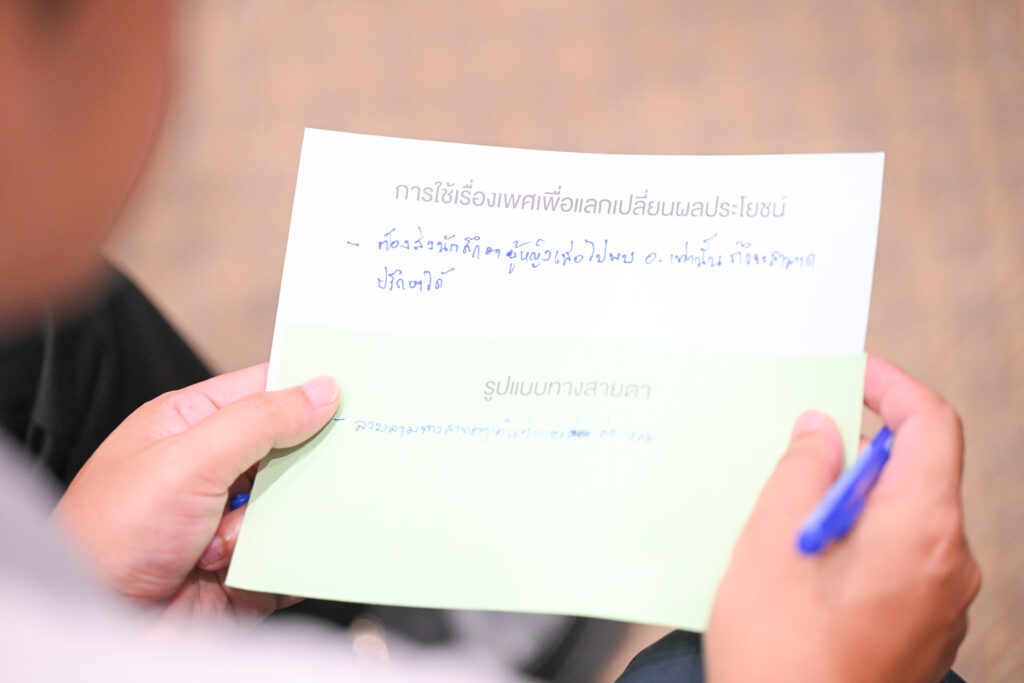 การใช้เรื่องเพศเพื่อแลกเปลี่ยนผลประโยชน์
- ต้องส่งนักศึกษาผู้หญิงเพื่อไปพบ อ. เท่านั้น ถึงจะสามารถ
ปรึกษาได้
รูปแบบทางสายตา
- ลวนลามทางสายตา